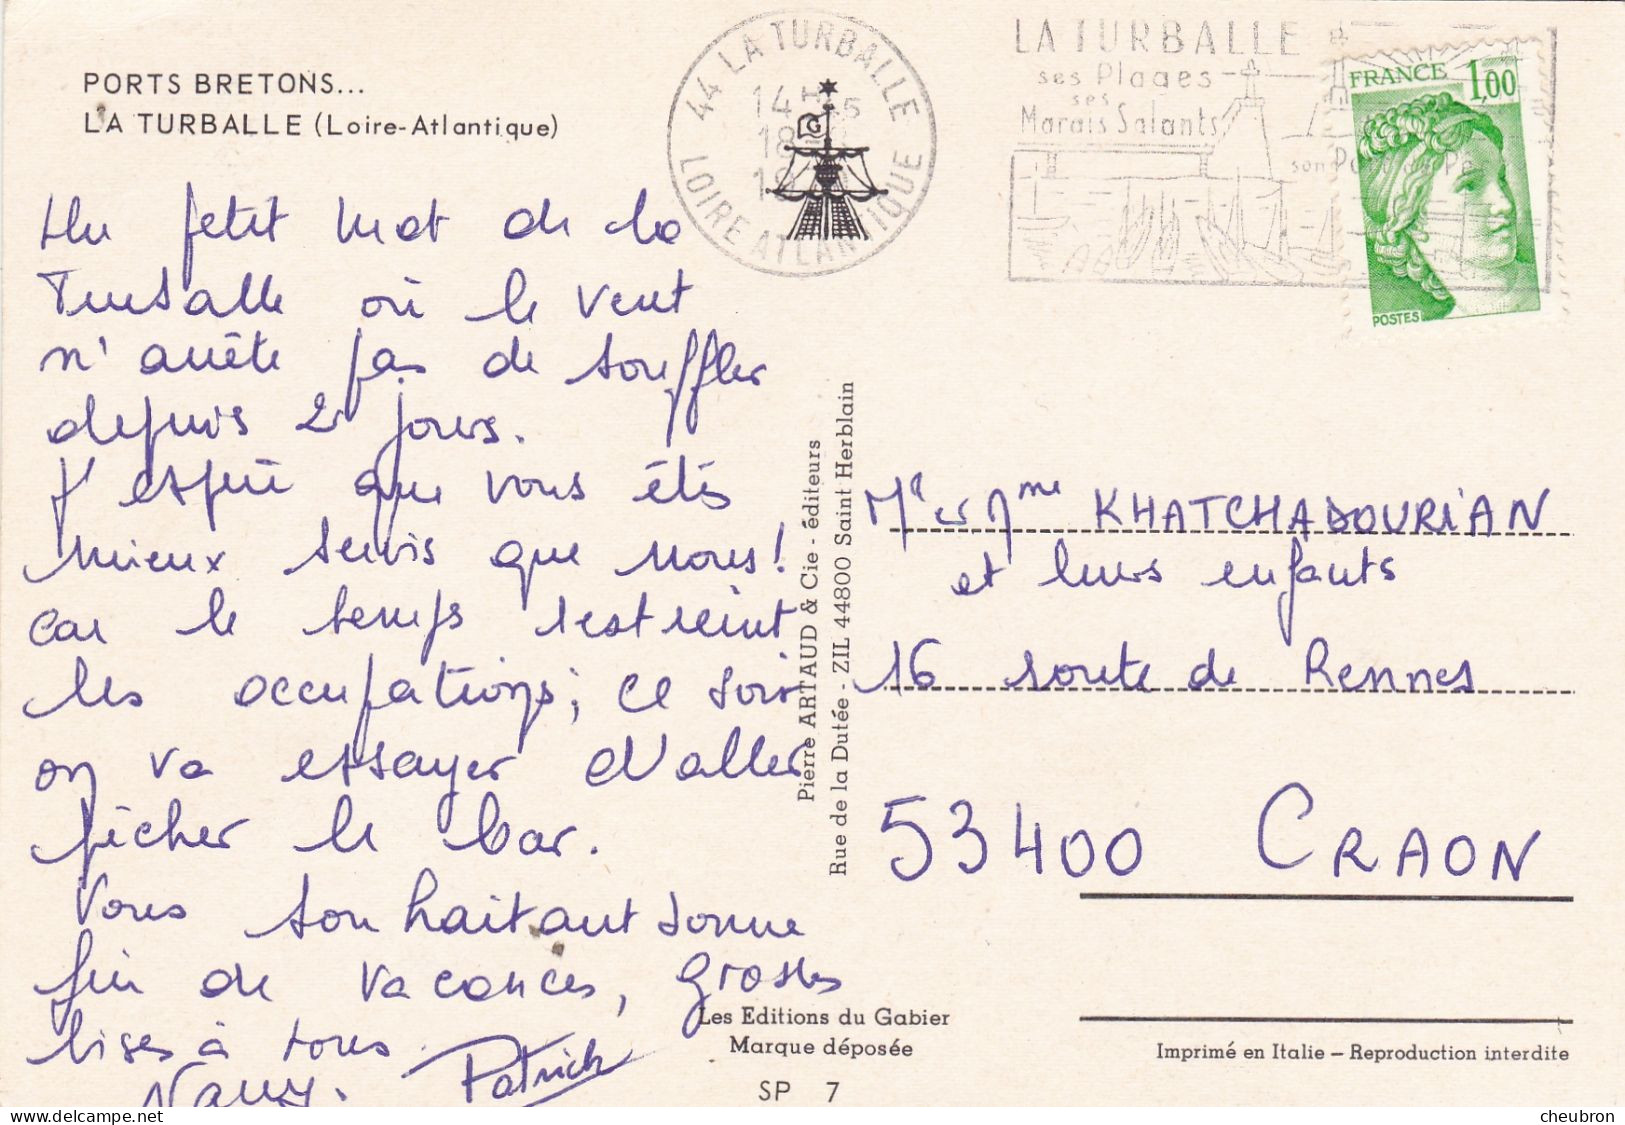 PORTS BRETONS...
LA TURBALLE (Loire-Atlantique)
44 LA TURBALLE
LOIRE ATLANTIQUE
14 H
18
G
LA TURBALLE
ses Plages
ses
Marais Salants
son Port de Pê
FRANCE 1,00
POSTES
Un petit mot de la
Turballe où le vent
n'arrête pas de souffler
depuis 2 jours.
J'espère que vous êtes
mieux servis que nous!
car le temps restreint
les occupations; ce soir
on va essayer d'aller
pêcher le bar.
Vous souhaitant bonne
fin de vacances, grosses
bises à tous.
Nancy. Patrick
Pierre ARTAUD & Cie - éditeurs
Rue de la Dutée - ZIL 44800 Saint Herblain
Mr et Mme KHATCHADOURIAN
et leurs enfants
16 route de Rennes
53400 CRAON
Les Editions du Gabier
Marque déposée
SP 7
Imprimé en Italie – Reproduction interdite
delcampe.net
cheubron